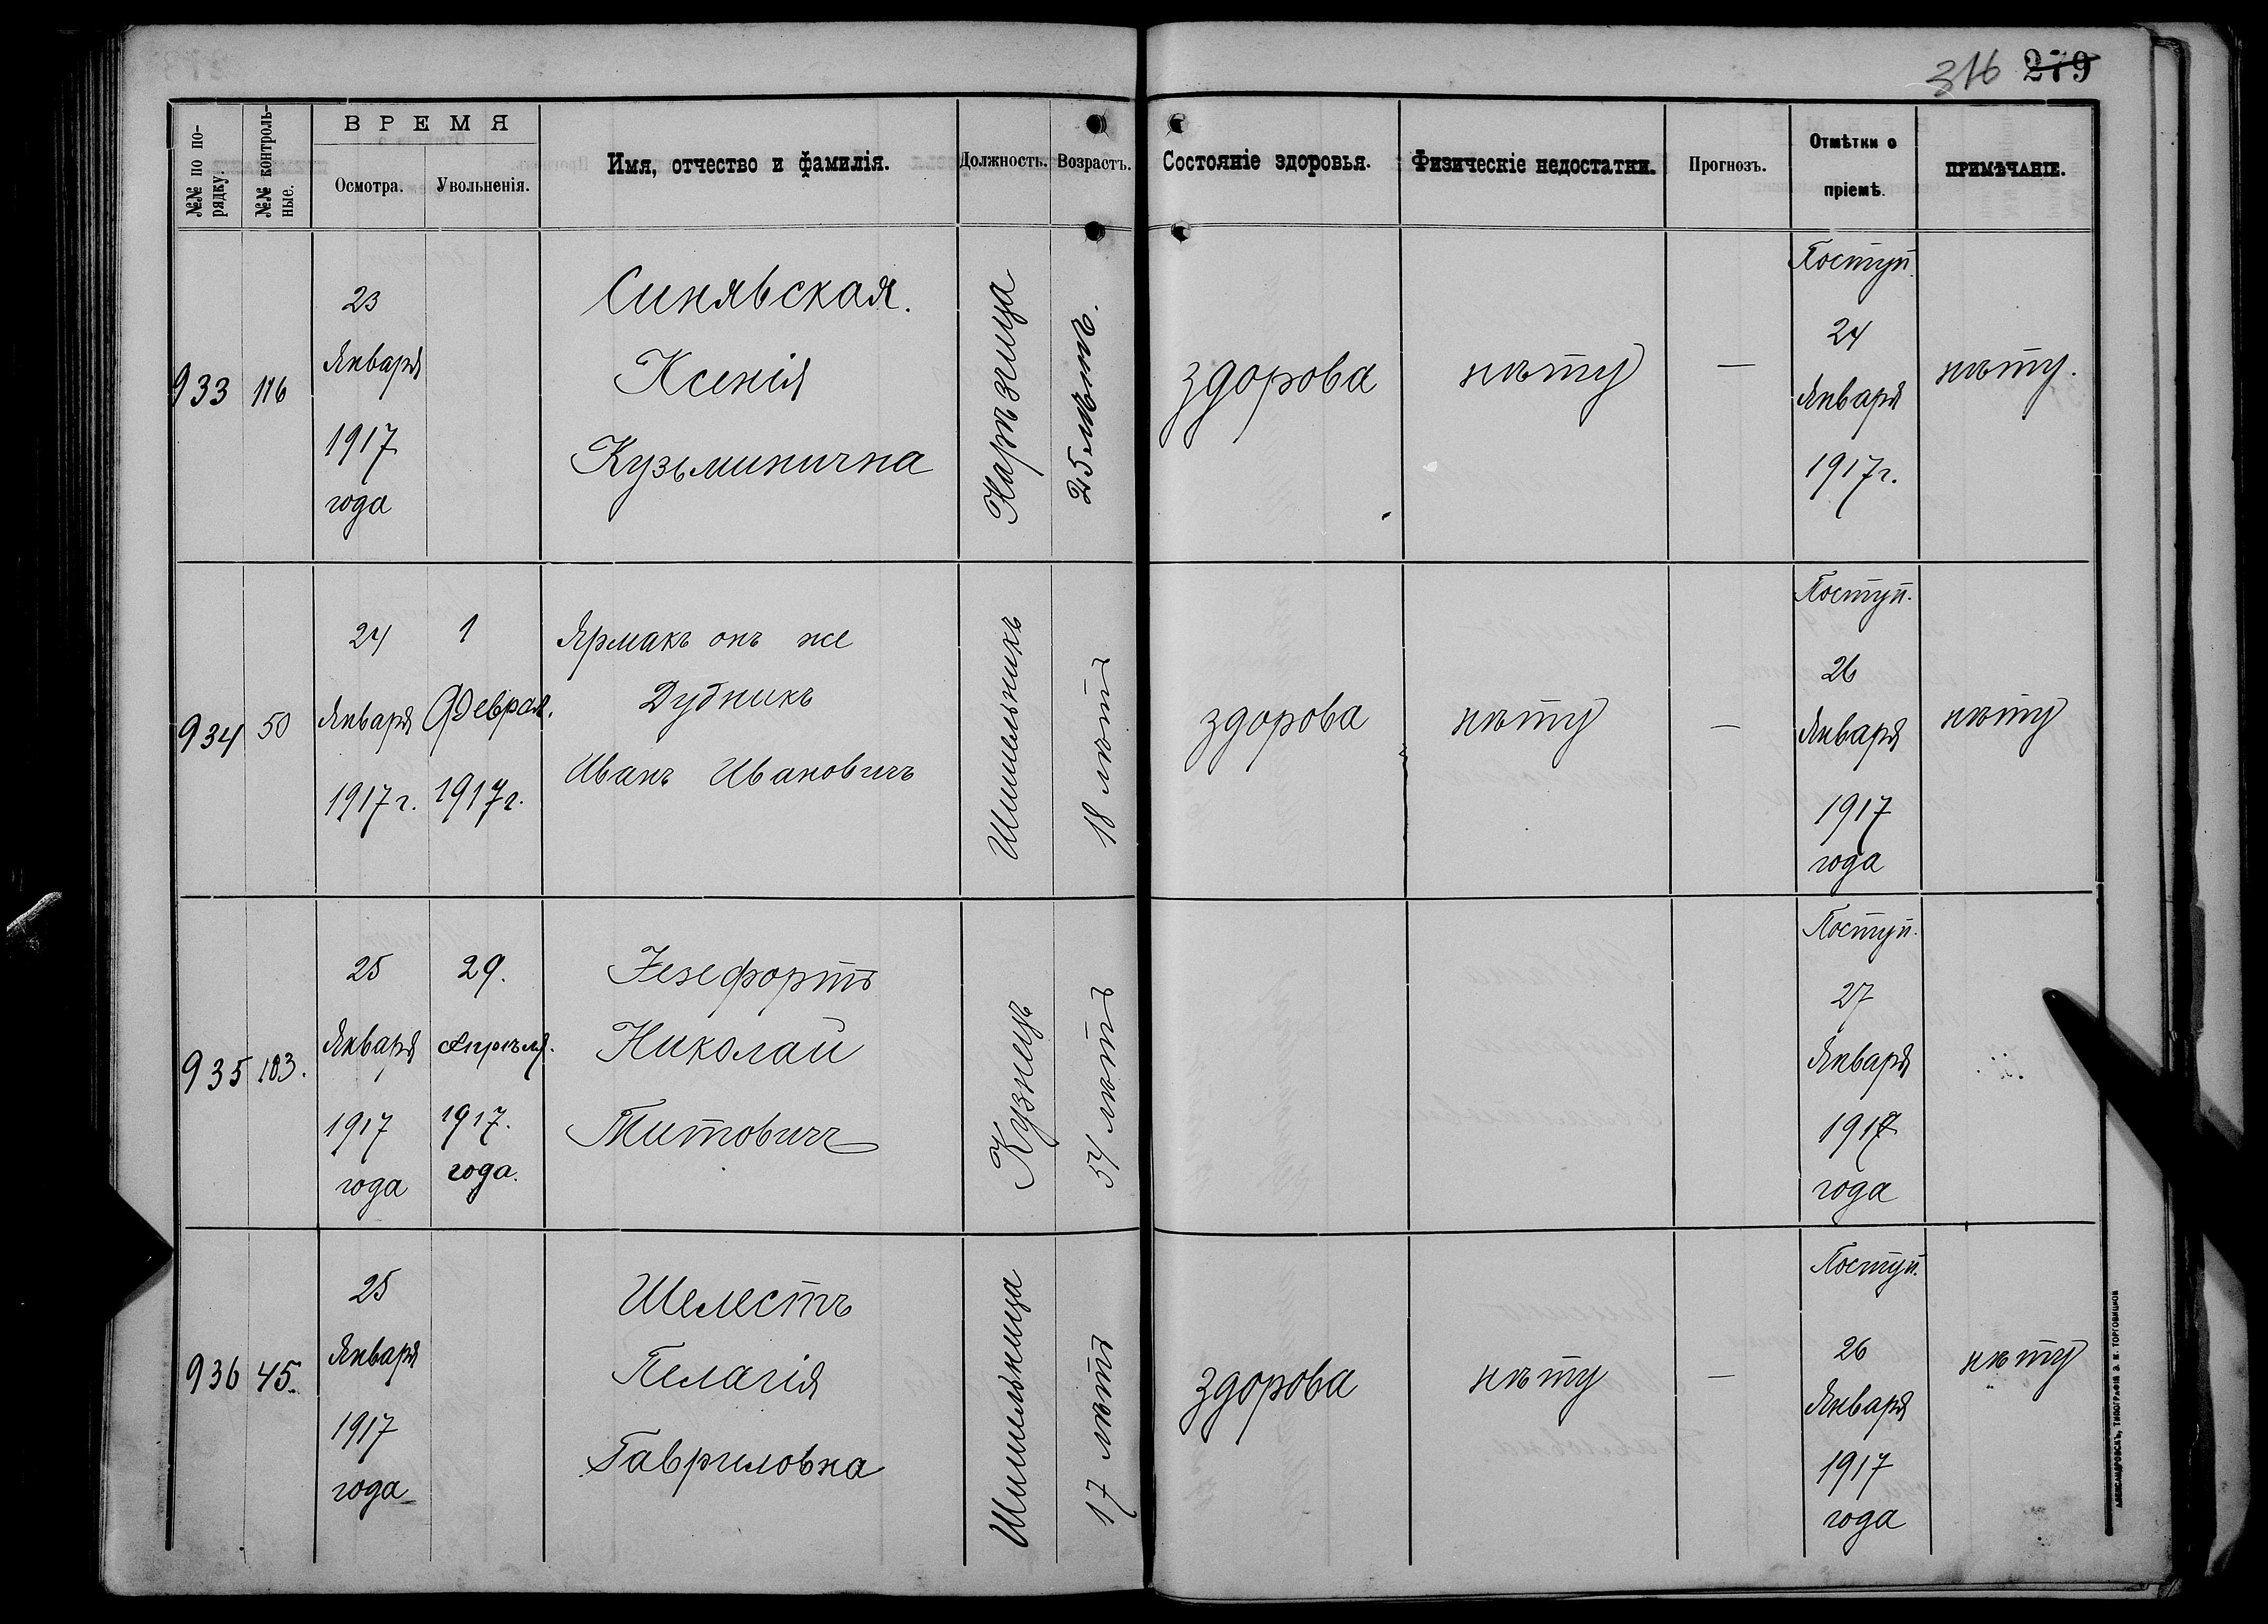 316 279
№№ по по-
рядку.
№№ контроль-
ные.
ВРЕМЯ
Осмотра.
Увольненія.
Имя, отчество и фамилія.
Должность.
Возрастъ.
Состояніе здоровья.
Физическіе недостатки.
Прогнозъ.
Отмѣтки о
пріемѣ.
ПРИМѢЧАНІЕ.
933
116
23
Января
1917
года
Синявская.
Ксенія
Кузьминична
Нарѣзница
25 лѣтъ.
здорова
нѣту
—
Поступ.
24
Января
1917 г.
нѣту.
934
50
24
Января
1917 г.
1
Феврал.
1917 г.
Ярмакъ онъ же
Дубникъ
Иванъ Ивановичъ
Шпильникъ
18 лѣтъ
здорова
нѣту
—
Поступ.
26
Января
1917
года
нѣту
935
103.
25
Января
1917
года
29.
Апрѣля.
1917.
года.
Николай
Титовичъ
Кузнецъ
54 лѣтъ
Поступ.
27
Января
1917
года
936
45.
25
Января
1917
года
Шелестъ
Пелагія
Гавриловна
Шпильница
17 лѣтъ
здорова
нѣту
—
Поступ.
26
Января
1917
года
нѣту
АЛЕКСАНДРОВСКЪ, ТИПОГРАФІЯ Э. И. ТОРГОВИЦКОВ